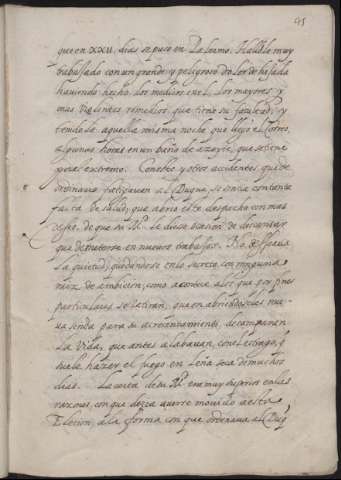 45
que en XXII. dias se puso en Palermo. Hallóle muy
trabajado con un grande y peligroso dolor de hijada
haviendo hecho los medicos en el los mayores y
mas violentos remedios, que tiene su facultad, y
tenidole aquella misma noche que llegó el Correo,
algunas horas en un baño de azeyte, que se tiene
por el extremo. Con esto y otros accidentes, que de
ordinario fatigavan al Duque, se sentia con tanta
falta de salud, que abrio el despacho con mas
deseo, de que su M.d le diesse licencia de descansar
que de meterse en nuevos trabajos. No desseava
la quietud, quedandose en lo secreto con ninguna
raiz de ambicion, como acontece a los que por fines
particulares se retiran, que en abriendoseles nue-
va senda para su acrecentamiento, desamparan
la vida, que antes alabavan, con el estrago, que
suele hazer el fuego en leña seca de muchos
dias. La carta de su M.d era muy superior en las
razones, con que dezia averse movido a esta
Elecion, a la forma con que ordenava al Duq